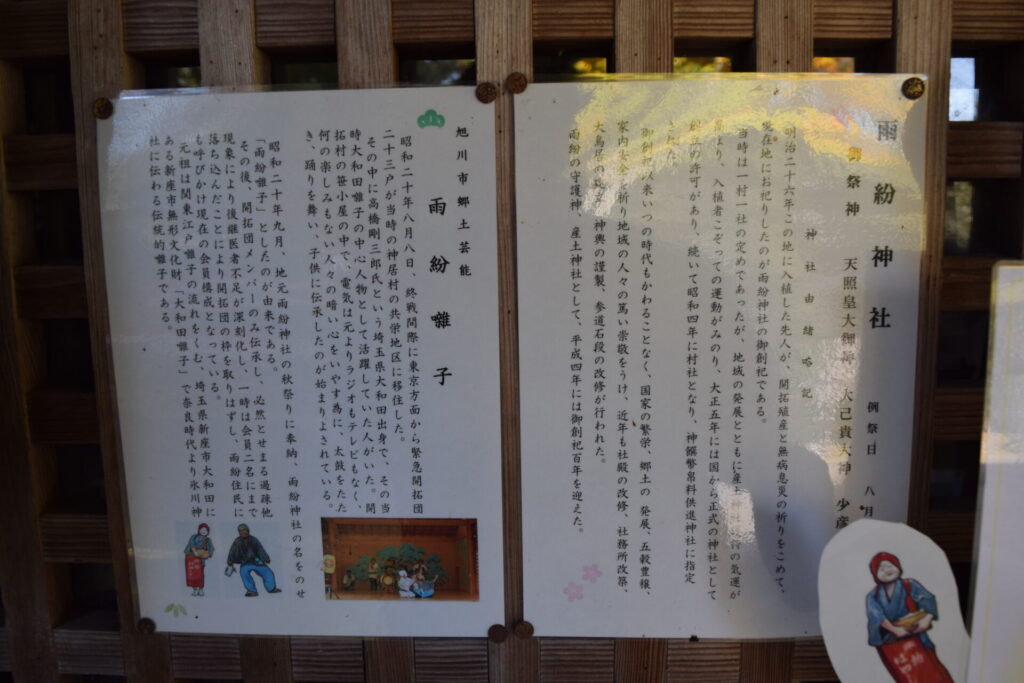 雨紛神社
例祭日 八月
御祭神 天照皇大御神 大己貴大神 少彦
神社由緒略記
明治二十六年この地に入植した先人が、開拓殖産と無病息災の祈りをこめて、
現在地にお祀りしたのが雨紛神社の御創祀である。
当時は一村一社の定めであったが、地域の発展とともに産土神社
の気運が
昂より、入植者こぞっての運動がみのり、大正五年には国から正式の神社として
創立の許可があり、続いて昭和四年に村社となり、神饌幣帛料供進神社に指定
された。
御創祀以来いつの時代もかわることなく、国家の繁栄、郷土の発展、五穀豊穣、
家内安全を祈り地域の人々の篤い崇敬をうけ、近年も社殿の改修、社務所改築、
大鳥居の
神輿の謹製、参道石段の改修が行われた。
雨紛の守護神、産土神社として、平成四年には御創祀百年を迎えた。
旭川市郷土芸能
雨紛囃子
昭和二十年八月八日、終戦間際に東京方面から緊急開拓団
二十三戸が当時の神居村の共栄地区に移住した。
その中に高橋剛三郎氏という埼玉県大和田出身で、その当
時大和田囃子の中心人物として活躍していた人がいた。開
拓村の笹小屋の中で、電気は元よりラジオもテレビもなく、
何の楽しみもない人々の暗い心をいやす為に、太鼓をたた
き、踊りを舞い、子供に伝承したのが始まりとされている。
昭和二十年九月、地元雨紛神社の秋祭りに奉納、雨紛神社の名をのせ
「雨紛囃子」としたのが由来である。
その後、開拓団メンバーのみ伝承し、必然とせまる過疎他
現象により後継医者不足が深刻化し、一時は会員二名にまで
落ち込んだことにより開拓団の枠を取りはずし、雨紛住民に
も呼びかけ現在の会員構成となっている。
元祖は関東江戸囃子の流れをくむ、埼玉県新座市大和田に
ある新座市無形文化財「大和田囃子」で奈良時代より氷川神
社に伝わる伝統的囃子である。